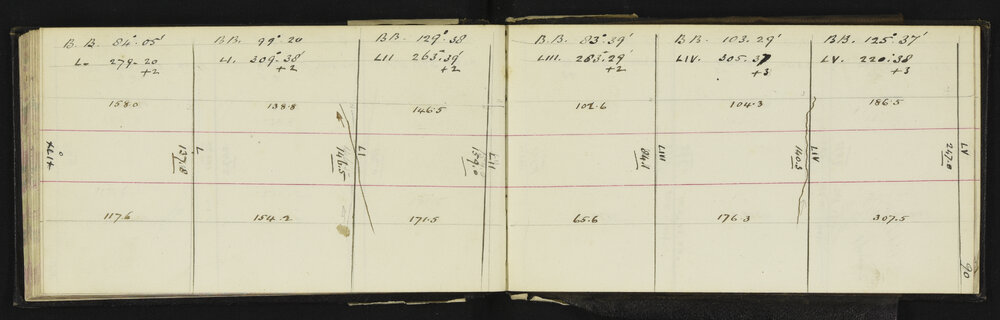 B.B. 84°.05' B.B. 99°.20 B.B. 129°.38 B.B. 83°.39' B.B. 103.29' B.B. 125°.37'
L. 279.20 LI. 309°.38' LII 263°.39' LIII. 283.29' LIV. 305.37 LV. 220.38
+2 +2 +2 +2 +3 +3
158.0 138.8 146.5 102.6 104.3 186.5
XLIX L 137.8 LI 146.5 LII 159.0 LIII 84.1 LIV 140.3 LV 247.0
117.6 154.2 171.5 65.6 176.3 307.5
90